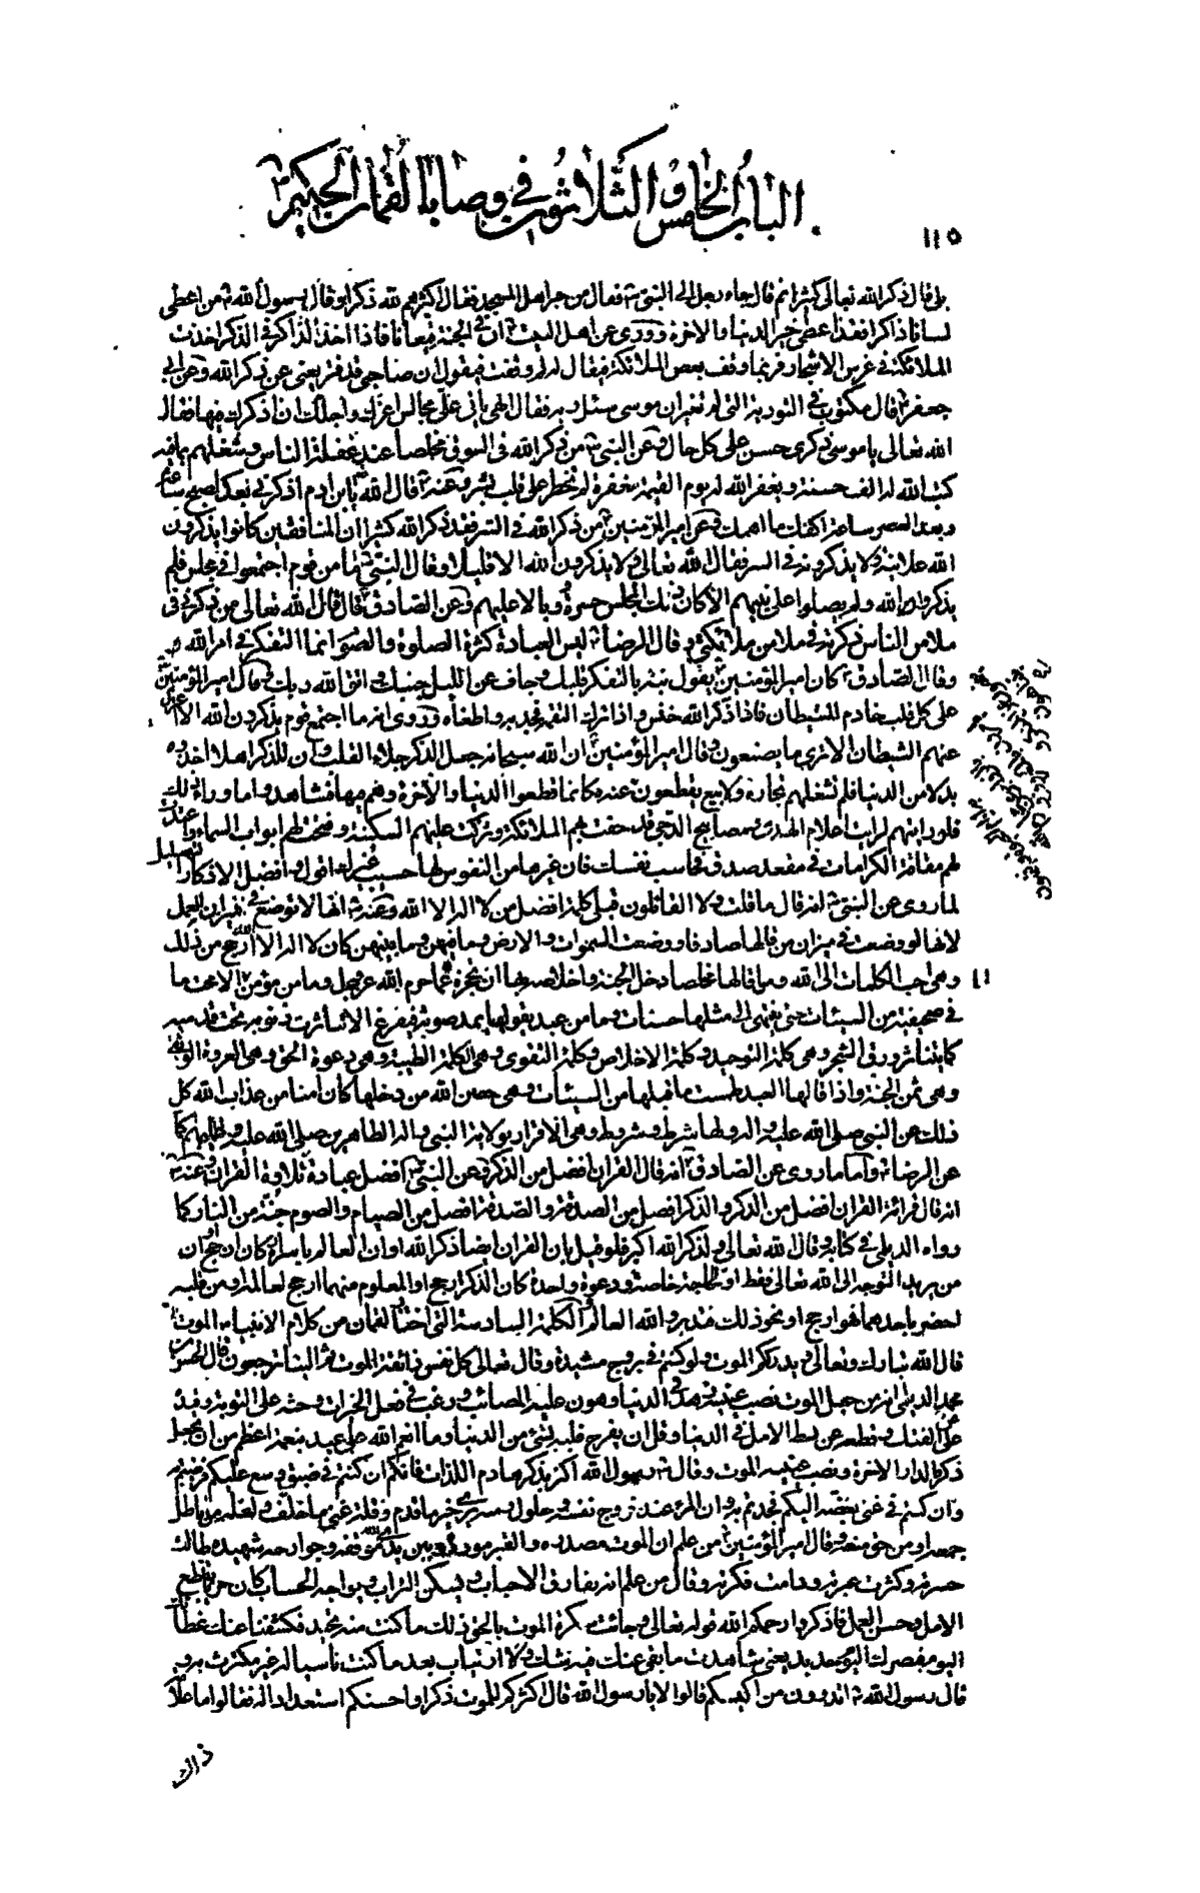 الباب الخامس والثلاثون في وصايا لقمان الحكيم
١١٥
قال ذكر الله تعالى كثيرا ثم قال جاء رجل الى النبي فقال من خير اهل المسجد فقال اكثرهم لله ذكرا وقال رسول الله من اعطى
لسانا ذاكرا فقد اعطى خير الدنيا والاخرة وروى عن اهل البيت ان في الجنة قيعانا فاذا اخذ الذاكر في الذكر اخذت
الملائكة في غرس الاشجار فربما وقف بعض الملائكة فيقال له لم وقفت فيقول ان صاحبي قد فتر يعني عن ذكر الله وعن ابي
جعفر قال مكتوب في التورية التي لم تغير ان موسى سئل ربه فقال الهي ياتي علي مجالس اعزك واجلك ان اذكرك فيها فقال
الله تعالى يا موسى ذكرى حسن على كل حال وعن النبي من ذكر الله في السوق مخلصا عند غفلة الناس وشغلهم بما فيه
كتب الله له الف حسنة ويغفر الله له يوم القيمة مغفرة لم تخطر على قلب بشر وعنه قال الله يابن ادم اذكرني بعد الصبح ساعة
وبعد العصر ساعة اكفك ما اهمك وعن امير المؤمنين من ذكر الله في السر فقد ذكر الله كثيرا ان المنافقين كانوا يذكرون
الله علانية ولا يذكرونه في السر فقال الله تعالى ولا يذكرون الله الا قليلا وقال النبي ما من قوم اجتمعوا في مجلس فلم
يذكروا الله ولم يصلوا على نبيهم الا كان ذلك المجلس حسرة ووبالا عليهم وعن الصادق قال قال الله تعالى من ذكرني في
ملا من الناس ذكرته في ملا من ملائكتي وقال الرضا ليس العبادة كثرة الصلوة والصوم انما التفكر في امر الله
وقال الصادق كان امير المؤمنين يقول نبه بالتفكر قلبك وجاف عن الليل جنبك واتق الله ربك وقال امير المؤمنين
على كل قلب خادم للشيطان فاذا ذكر الله خنس واذا ترك وروى انه ما اجتمع قوم يذكرون الله الا اعتزل
عنهم الشيطان ما يصنعون وقال امير المؤمنين ان الله سبحانه جعل الذكر جلاء القلب وان للذكر اهلا اخذوه
بدلا من الدنيا فلم تشغلهم تجارة ولا بيع يقطعون عنه كانما قطعوا الدنيا والاخرة وهم فيها فشاهدوا ما وراء ذلك
فلو رايتهم لرايت اعلام الهدى ومصابيح الدجى قد حفت بهم الملائكة وتنزلت عليهم السكينة وفتحت لهم ابواب السماء واعدت
لهم مقاعد الكرامات في مقعد صدق فحاسب نفسك فان غيرها من النفوس لها حسيب غيرك اقول وافضل الاذكار التهليل
لما روى عن النبي انه قال ما قلت ولا القائلون قبلي كلمة افضل من لا اله الا الله وعنه انها لا توضع في ميزان العمل
لانها لو وضعت في ميزان من قالها صادقا ووضعت السموات والارض وما فيهن وما بينهن كان لا اله الا الله ارجح من ذلك
وهي احب الكلمات الى الله ومن قالها مخلصا دخل الجنة واخلاصه بها ان تحجزه عما حرم الله عز وجل وما من مؤمن الا محت ما
في صحيفته من السيئات حتى ينتهى الى مثلها حسنات وما من عبد يقولها يمد صوته فيفرغ الا تناثرت ذنوبه تحت قدميه
كما يتناثر ورق الشجر وهي كلمة التوحيد وكلمة الاخلاص وكلمة التقوى وهي الكلمة الطيبة وهي دعوة الحق وهي العروة الوثقى
وهي ثمن الجنة واذا قالها العبد طمست ما قبلها من السيئات وهي حصن الله من دخلها كان امنا من عذاب الله كل
ذلك عن النبي صلى الله عليه واله ولها شرط وشروط وهي الاقرار بولاية النبي واله الطاهرين صلى الله عليه وعليهم كما
عن الرضا واما ما روى عن الصادق انه قال القران افضل من الذكر وعن النبي افضل عبادة تلاوة القران وعنه
انه قال قرائة القران افضل من الذكر والذكر افضل من الصدقة والصدقة افضل من الصيام والصوم جنة من النار كما
رواه الديلمي في كتابه وقال الله تعالى ولذكر الله اكبر فلو قيل بان القران ايضا ذكر الله او ان العالم باسراره كان ارجح وان
من يريد التوجه الى الله تعالى فقط او لحاجة خاصة ودعوة واحدة كان الذكر ارجح او المعلوم منهما ارجح لعالمه ومن قلبه
احضر باحدهما فهو ارجح او نحو ذلك فتدبر والله العالم الكلمة السادسة التي اختارها لقمان من كلام الانبياء الموت
قال الله تبارك وتعالى يدرككم الموت ولو كنتم في بروج مشيدة وقال تعالى كل نفس ذائقة الموت ثم الينا ترجعون قال الحسن بن
محمد الديلمي من جعل الموت نصب عينيه زهده في الدنيا وهون عليه المصائب ورغبه في فعل الخيرات وحثه على التوبة وقيده
عن الفتك وقطعه عن بسط الامل في الدنيا وقل ان يفرح قلبه بشئ من الدنيا وما انعم الله على عبد بنعمة اعظم من ان يجعل
ذكر الدار الاخرة ونصب عينيه الموت وقال رسول الله اكثروا ذكر هادم اللذات فانكم ان كنتم في ضيق وسع عليكم فرضيتم به
وان كنتم في غنى بغضه اليكم فجدتم به وان المرء عند خروج نفسه وحلول رمسه يرى خير ما قدم وقلة غنى ما خلف ولعله من باطل
جمعه او من حق منعه وقال امير المؤمنين من علم ان الموت مصدره والقبر مورده وبين يدى الله موقفه وجوارحه شهيدة طالت
حسرته وكثرت عبرته ودامت فكرته وقال من علم انه يفارق الاحباب ويسكن التراب ويواجه الحساب كان حريا بقطع
الامل وحسن العمل فاذكروا رحمكم الله قوله تعالى وجائت سكرة الموت بالحق ذلك ما كنت منه تحيد فكشفنا عنك غطاءك
فبصرك اليوم حديد يعني شاهدت ما بقى عنك فيه شك ولا ارتياب بعد ما كنت ناسيا له غير مكترث به
قال رسول الله اتدرون من اكيسكم قالوا لا يا رسول الله قال اكثركم للموت ذكرا واحسنكم استعدادا له فقالوا ما علامة
ذلك